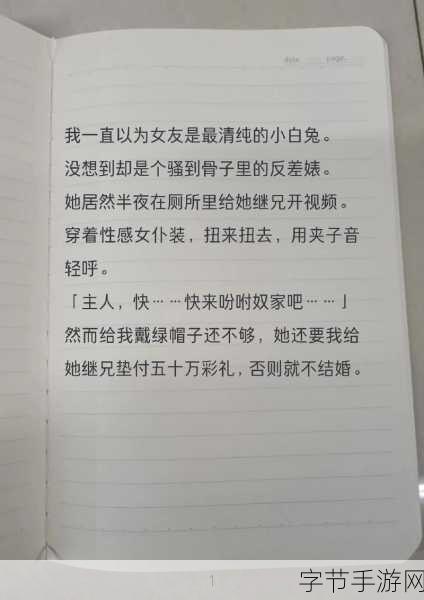 date page
我一直以为女友是最清纯的小白兔。
没想到却是个骚到骨子里的反差婊。
她居然半夜在厕所里给她继兄开视频。
穿着性感女仆装，扭来扭去，用夹子音
轻呼。
「主人，快……快来吩咐奴家吧……」
然而给我戴绿帽子还不够，她还要我给
她继兄垫付五十万彩礼，否则就不结婚。
1
字节手游网